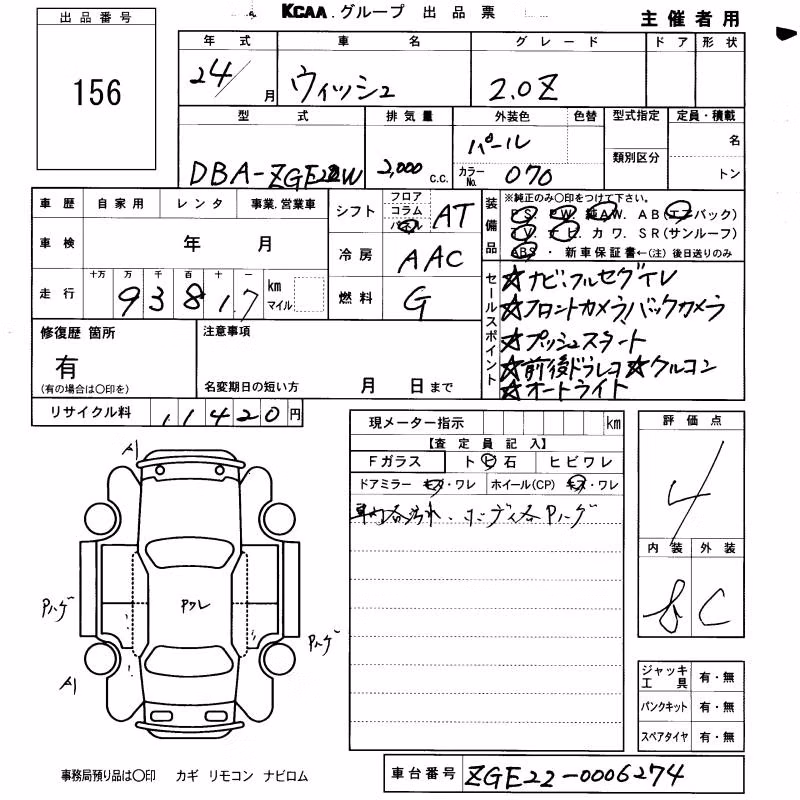 KCAA.グループ 出品票
主催者用
出品番号
156
年式 車名 グレード ドア 形状
24/ 月 ウィッシュ 2.0Z
型式 排気量 外装色 色替 型式指定 定員・積載
DBA-ZGE22W 2,000 c.c. パール 名
カラーNo. 070 類別区分 トン
車歴 自家用 レンタ 事業.営業車
シフト フロア コラム パネル AT
装備品 ※純正のみ○印をつけて下さい。
PS. PW. 純AW. AB(エアバック)
TV. ナビ. カワ. SR(サンルーフ)
ABS ・ 新車保証書←(注)後日送りのみ
車検 年 月
冷房 AAC
走行 十万 万 千 百 十 一
9 3 8 1.7 km マイル
燃料 G
セールスポイント
☆ナビ、フルセグTV
☆フロントカメラ、バックカメラ
☆プッシュスタート
☆前後ドラレコ ☆クルコン
☆オートライト
修復歴 箇所
有
(有の場合は○印を)
注意事項
名変期日の短い方 月 日まで
リサイクル料 11420円
現メーター指示 km
【査定員記入】
Fガラス ト ビ 石 ヒビワレ
ドアミラー キズ・ワレ ホイール(CP) キズ・ワレ
車内各汚れ、ボディ各Pハゲ
評価点
4
内装 外装
C
A1
Pハゲ
Pワレ
Pハゲ
A1
ジャッキ工具 有・無
パンクキット 有・無
スペアタイヤ 有・無
事務局預り品は○印 カギ リモコン ナビロム
車台番号 ZGE22-0006274